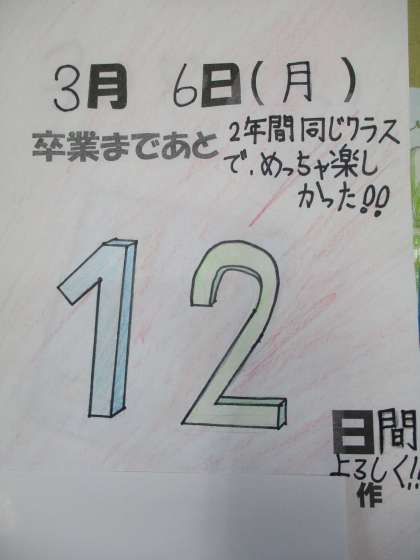 3月 6日(月)
卒業まであと
2年間同じクラス
で、めっちゃ楽し
かった!!
12
日間
よろしく!!
作